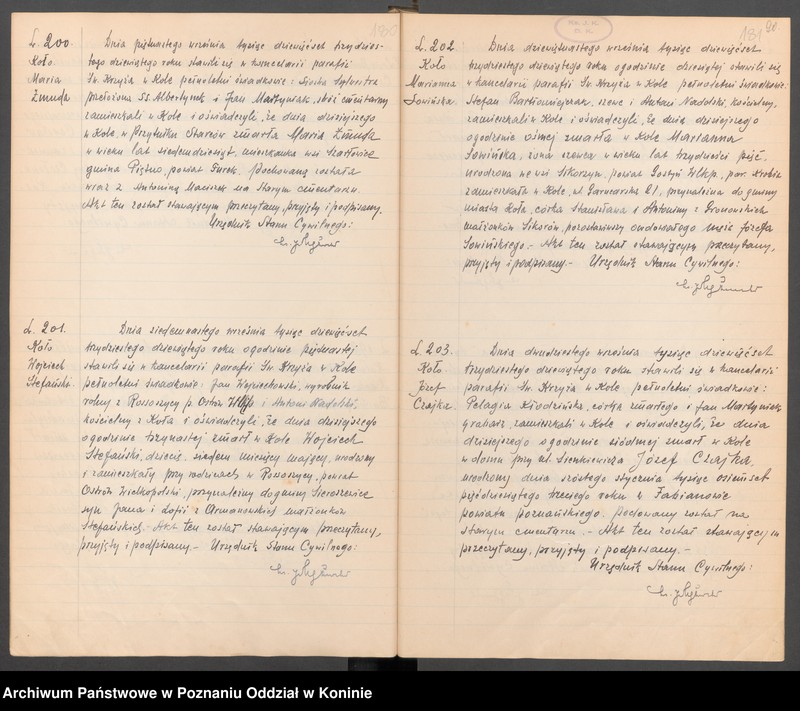 180
L. 200.
Koło
Maria
Żmuda
Dnia piętnastego września tysiąc dziewięćset trzydzies-
tego dziewiątego roku stawili się w kancelarii parafii
Św. Krzyża w Kole pełnoletni świadkowie: Siostra Sylwestra
przełożona SS. Albertynek i Jan Martyniak, stróż cmentarny
zamieszkali w Kole i oświadczyli, że dnia dzisiejszego
w Kole w Przytułku Starców zmarła Maria Żmuda
w wieku lat siedemdziesiąt, mieszkanka wsi
gmina Piętno, powiat Turek. Pochowana została
wraz z Antoniną na starym cmentarzu.
Akt ten został stawającym przeczytany, przyjęty i podpisany.
Urzędnik Stanu Cywilnego:
L. 201.
Koło
Wojciech
Stefański.
Dnia siedemnastego września tysiąc dziewięćset
trzydziestego dziewiątego roku o godzinie piętnastej
stawili się w kancelarii parafii Św. Krzyża w Kole
pełnoletni świadkowie: Jan Wojciechowski, wyrobnik
rolny z Rososzycy p. Ostrów Wlkp. i Antoni Nadolski,
kościelny z Koła i oświadczyli, że dnia dzisiejszego
o godzinie trzynastej zmarł w Kole Wojciech
Stefański, dziecię, siedem miesięcy mający, urodzony
i zamieszkały przy rodzicach w Rososzycy, powiat
Ostrów Wielkopolski, przynależny do gminy Sieroszewice
syn Jana i Zofii z małżonków
Stefańskich. - Akt ten został stawającym przeczytany,
przyjęty i podpisany. - Urzędnik Stanu Cywilnego:
181
90.
L. 202.
Koło
Marianna
Sowińska.
Dnia dziewiętnastego września tysiąc dziewięćset
trzydziestego dziewiątego roku o godzinie dziesiątej stawili się
w kancelarii parafii Św. Krzyża w Kole pełnoletni świadkowie:
Stefan szewc i Antoni Nadolski, kościelny,
zamieszkali w Kole i oświadczyli, że dnia dzisiejszego
o godzinie ósmej zmarła w Kole Marianna
Sowińska, żona szewca w wieku lat trzydzieści pięć,
urodzona we wsi Sikorzyn, powiat Gostyń Wlkp., par.
zamieszkała w Kole, ul. Garncarska 21, przynależna do gminy
miasta Koła, córka Stanisława i Antoniny z
małżonków Sikorów, pozostawiwszy owdowiałego męża Józefa
Sowińskiego. - Akt ten został stawającym przeczytany,
przyjęty i podpisany. - Urzędnik Stanu Cywilnego:
L. 203.
Koło
Józef
Czajka.
Dnia dwudziestego września tysiąc dziewięćset
trzydziestego dziewiątego roku stawili się w kancelarii
parafii Św. Krzyża w Kole pełnoletni świadkowie:
Pelagia Kłodzińska, córka zmarłego i Jan Martyniak
grabarz, zamieszkali w Kole i oświadczyli, że dnia
dzisiejszego o godzinie siódmej zmarł w Kole
w domu przy ul. Sienkiewicza Józef Czajka,
urodzony dnia szóstego stycznia tysiąc osiemset
pięćdziesiątego trzeciego roku w Fabianowie
powiatu poznańskiego, pochowany został na
starym cmentarzu. - Akt ten został stawającym
przeczytany, przyjęty i podpisany. -
Urzędnik Stanu Cywilnego:
Archiwum Państwowe w Poznaniu Oddział w Koninie